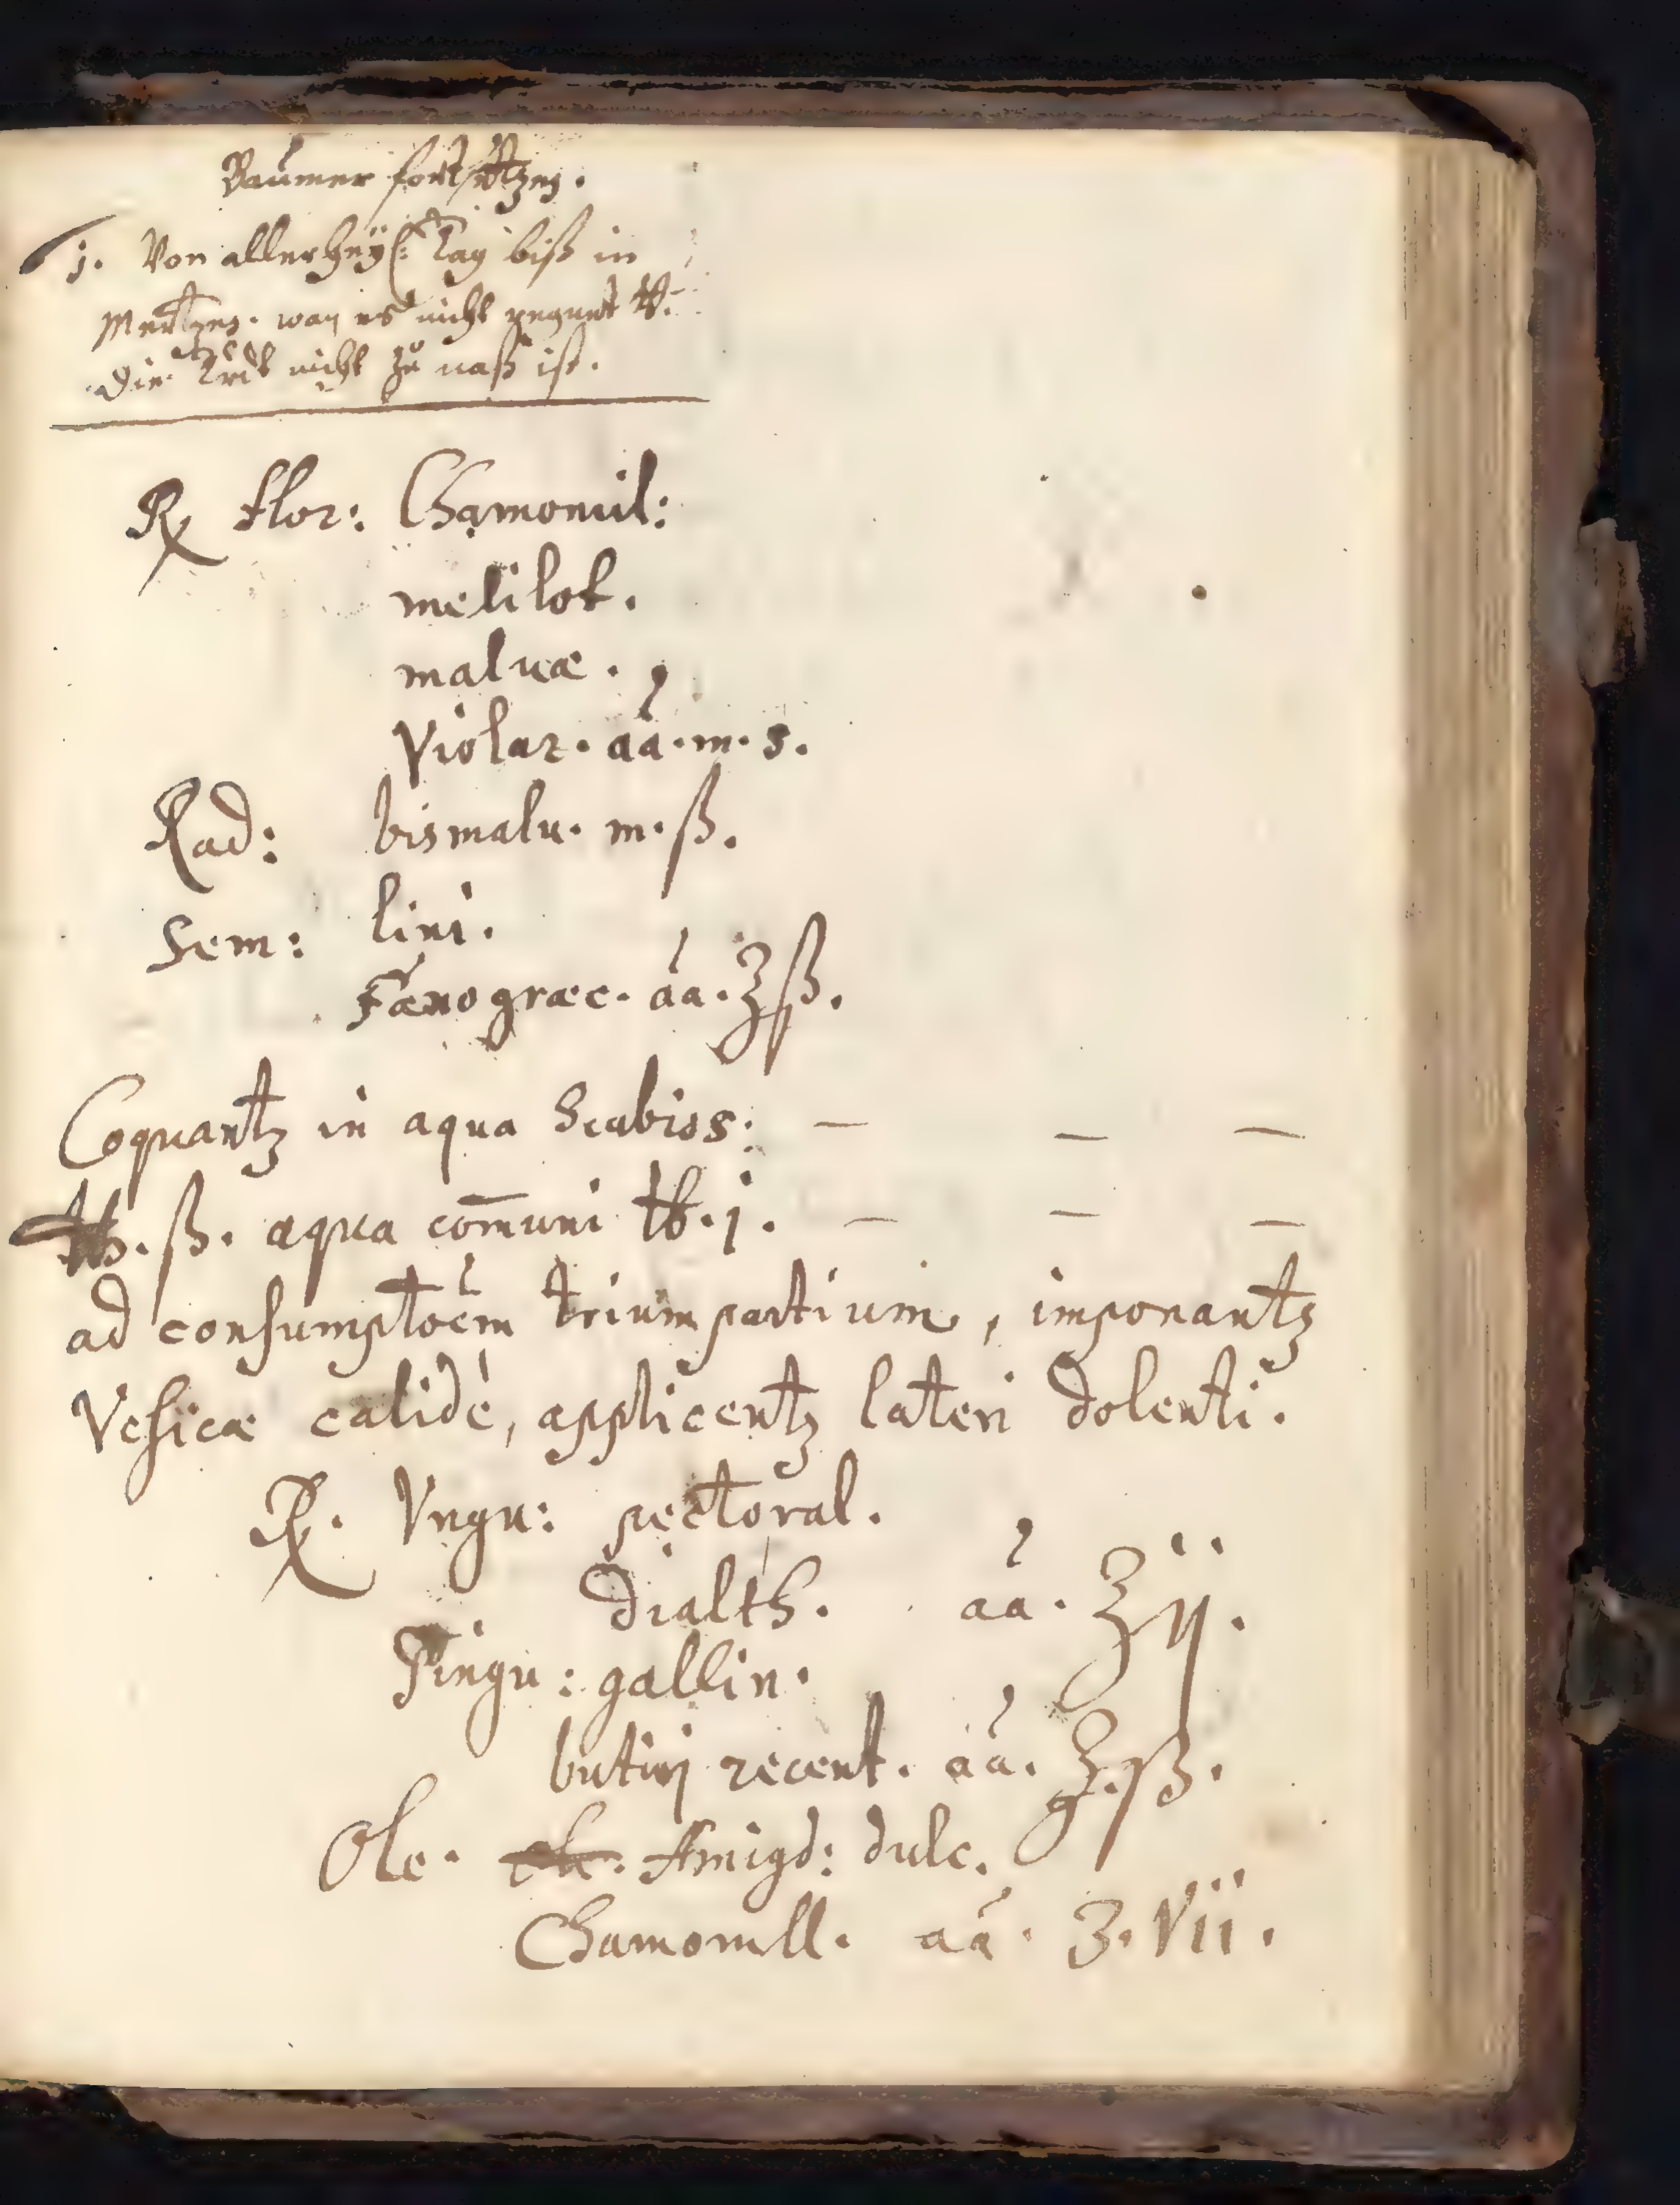 Baumer fortsetzen.
j. Von allerheyl: Tag biß in
Mertzen. wan es nicht regnet
die Erdt nicht zu naß ist.
℞ flor: Chamomil:
melilot.
maluæ.
Violar. aa. m. s.
Rad: bismalu. m. ß.
Sem: lini.
Fænogræc. aa. ℥ß.
Coquantꝫ in aqua Scabios: — — —
℔. ß. aqua com̄uni ℔. j. — — —
ad consumpto͞em trium partium, imponantꝫ
Vesicæ calidè, applicentꝫ lateri dolenti.
℞. Vngu: pectoral.
dialth. aa. ℥ ij.
Pingu: gallin.
butirj recent. aa. ℥. ß.
Ole. Amigd: dulc.
Chamomill. aa. ʒ. Vii.